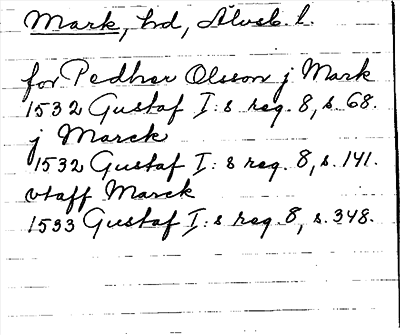 Mark, hd, Älvsb. l.
för Pedher Olsson j Mark
1532 Gustaf I: s reg. 8, s. 68.
j Marck
1532 Gustaf I: s reg. 8, s. 141.
vtaff Marck
1533 Gustaf I: s reg. 8, s. 348.